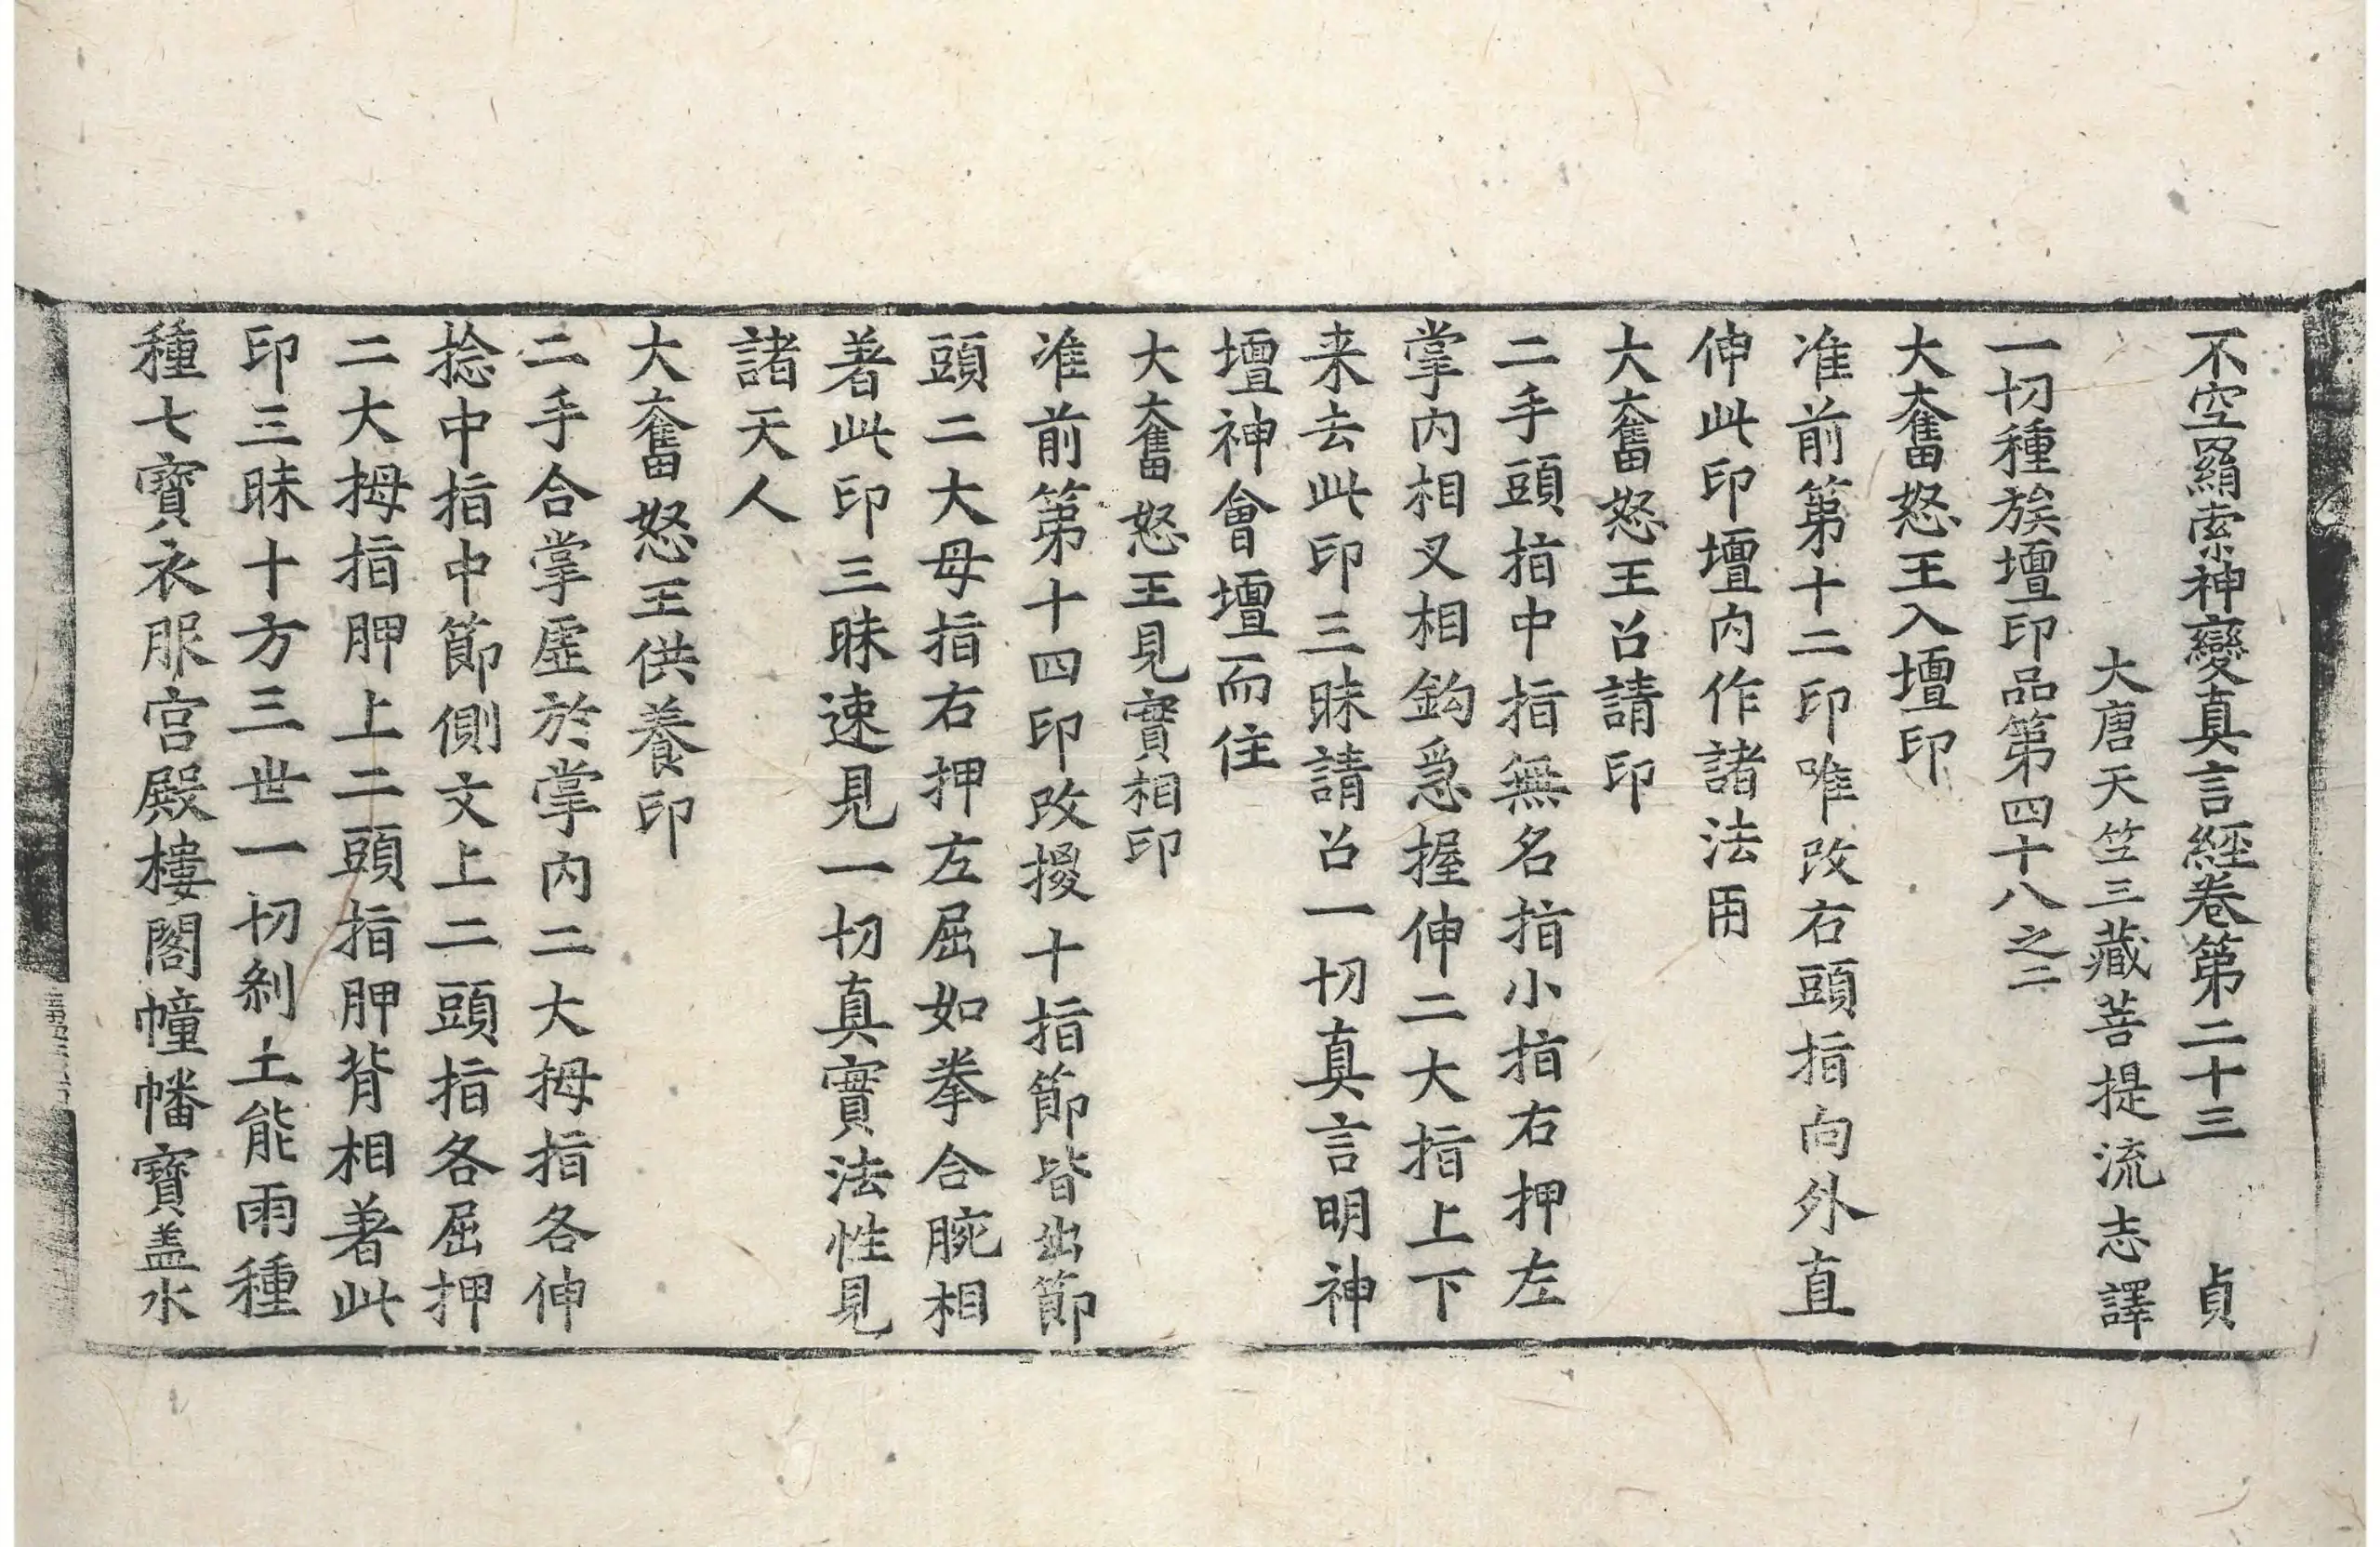 不空羂索神變真言經卷第二十三　貞
大唐天竺三藏菩提流志譯
一切種族壇印品第四十八之二
大奮怒王入壇印
准前第十二印唯改右頭指向外直
伸此印壇內作諸法用
大奮怒王召請印
二手頭指中指無名指小指右押左
掌內相叉相鈎急握伸二大指上下
来去此印三昧請召一切真言明神
壇神會壇而住
大奮怒王見實相印
准前第十四印改擾十指節皆出節
頭二大母指右押左屈如拳合腕相
著此印三昧速見一切真實法性見
諸天人
大奮怒王供養印
二手合掌虛於掌內二大拇指各伸
捻中指中節側文上二頭指各屈押
二大拇指胛上二頭指胛背相著此
印三昧十方三世一切剎土能雨種
種七寶衣服宮殿樓閣幢幡寶盖水